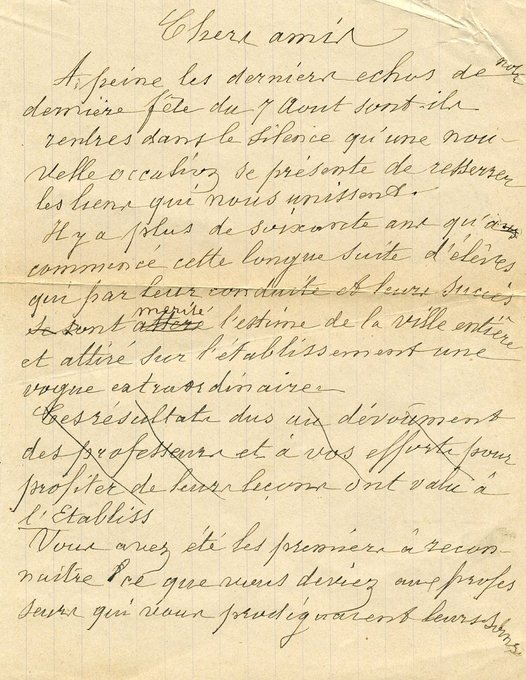 Chers amis
A peine les derniers echos de notre
dernière fête du 7 Aout sont-ils
rentres dans le silence qu'une nou-
velle occasion se présente de resserrer
les liens qui nous unissent.
Il y a plus de soixante ans qu'a
commencé cette longue suite d'élèves
qui par leur conduite et leurs succès
se sont mérité l'estime de la ville entière
et attiré sur l'établissement une
vogue extraordinaire.
Ces résultats dus au dévoûment
des professeurs et à vos efforts pour
profiter de leurs leçons ont valu à
l'Etabliss
Vous avez été les premiers à recon-
naitre ce que vous deviez aux profes
seurs qui vous prodiguaient leurs soins